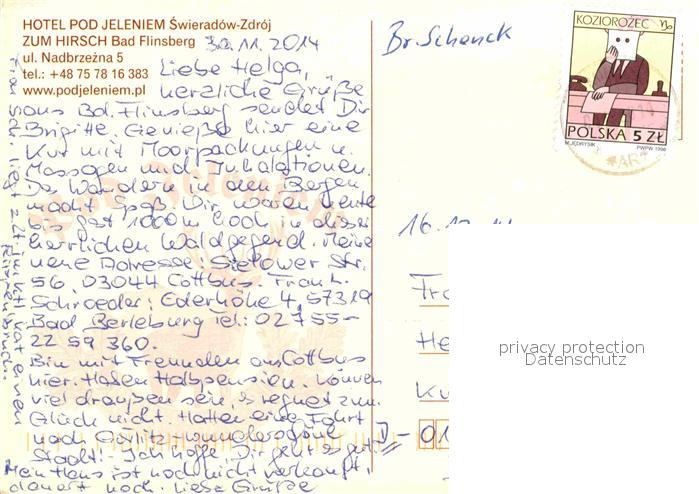 HOTEL POD JELENIEM Świeradów-Zdrój
ZUM HIRSCH Bad Flinsberg 30.11.2014
ul. Nadbrzeżna 5
tel.: +48 75 78 16 383
www.podjeleniem.pl
Liebe Helga,
herzliche Grüße
aus Bd. Flinsberg sendet Dir
Brigitte. Genieße hier eine
Kur mit Moorpackungen u.
Massagen und Inhalationen.
Das Wandern in den Bergen
macht Spaß. Wir waren heute
bis fast 1000 m hoch in dieser
herrlichen Waldgegend. Meine
neue Adresse: Sielower Str.
56, 03044 Cottbus. Frau H.
Schroeder: Ederhöhe 4, 57319
Bad Berleburg Tel: 02755-
22 59 360.
Bin mit Freunden aus Cottbus
hier. Haben Halbpension. Können
viel draußen sein, es regnet zum
Glück nicht. Hatten eine Fahrt
nach Görlitz - wunderschöne
Stadt! - Ich hoffe, Dir geht es gut!
Mein Haus ist noch nicht verkauft,
dauert noch. Liebe Grüße
Frau Sch. liegt z. Zt. im
Br. Schenck
KOZIOROŻEC
POLSKA 5 ZŁ
M. JĘDRYSIK PWPW 1996
16.12.14
Fra
He
Ku
D-01
privacy protection
Datenschutz